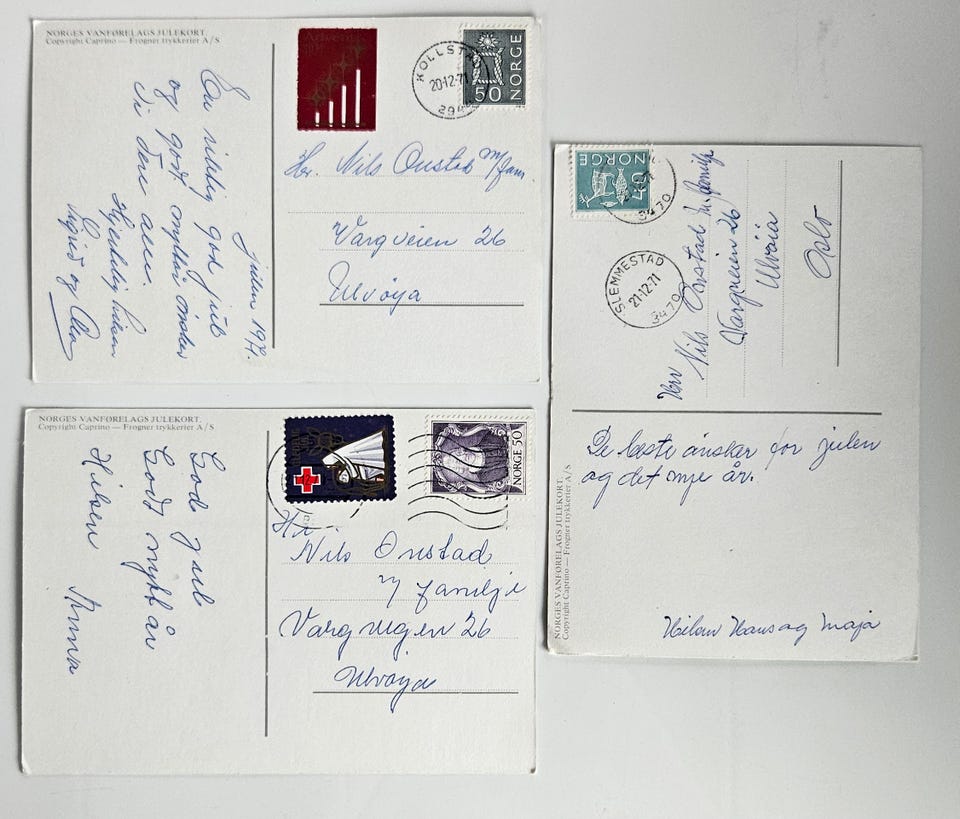 NORGES VANFØRELAGS JULEKORT.
Copyright Caprino — Frogner trykkerier A/S
Julen 1971.
En riktig god jul
og godt nyttår ønskes
dere alle.
Hjertelig hilsen
Sigrid og
20.12.71
294
50 NORGE
Hr. Nils Onstad m/fam.
Vargveien 26
Ulvøya
NORGES VANFØRELAGS JULEKORT.
Copyright Caprino — Frogner trykkerier A/S
God jul
Godt nytt år
Hilsen Anna
NORGE 50
Hr
Nils Onstad
m/ familje
Vargvegen 26
Ulvøya
NORGES VANFØRELAGS JULEKORT.
Copyright Caprino — Frogner trykkerier A/S
NORGE
3470
SLEMMESTAD
21.12.71
3470
Herr Nils Onstad m familje
Vargveien 26
Ulvøia
Oslo
De beste ønsker for julen
og det nye år.
Hilsen Hans og Maja